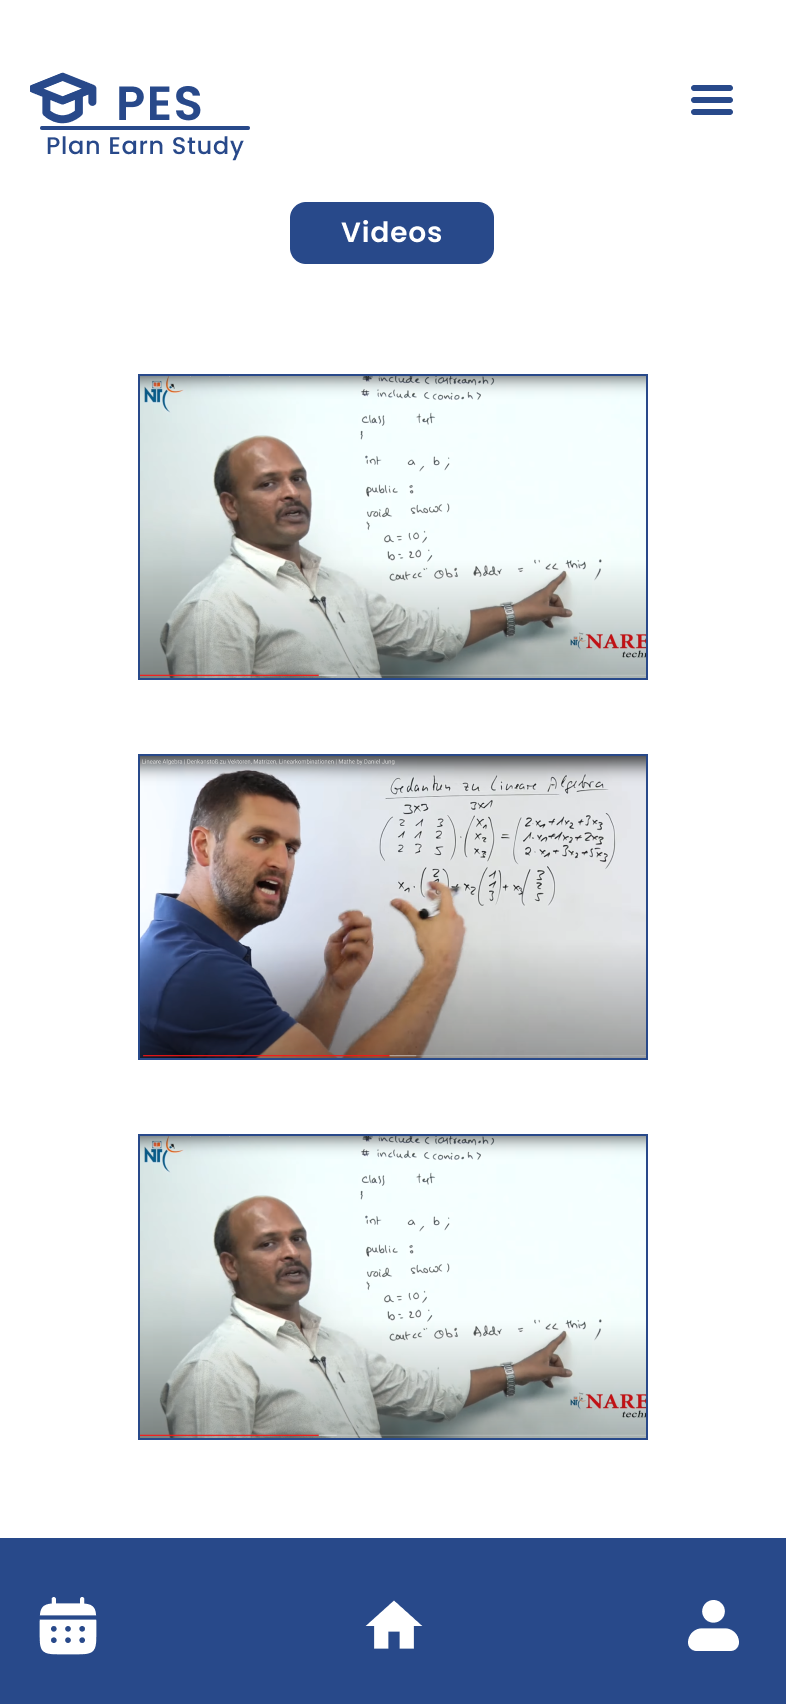 PES
Plan Earn Study
Videos
# include (iostream.h)
# include (conio.h)
class test
{
int a, b ;
public :
void show()
}
a = 10 ;
b = 20 ;
cout << " Obj Addr = " << this ;
NARE
techn
Lineare Algebra | Denkanstoß zu Vektoren, Matrizen, Linearkombinationen | Mathe by Daniel Jung
Gedanken zu Lineare Algebra
3x3 3x1
( 2 1 3 ) ( x₁ ) ( 2x₁+1x₂+3x₃ )
( 1 1 2 ) · ( x₂ ) = ( 1·x₁+1x₂+2x₃ )
( 2 3 5 ) ( x₃ ) ( 2·x₁+3x₂+5x₃ )
x₁ · ( 2 ) + x₂ ( 1 1 3 ) + x₃ ( 3 2 5 )
# include (iostream.h)
# include (conio.h)
class test
{
int a, b ;
public :
void show()
}
a = 10 ;
b = 20 ;
cout << " Obj Addr = " << this ;
NARE
techn